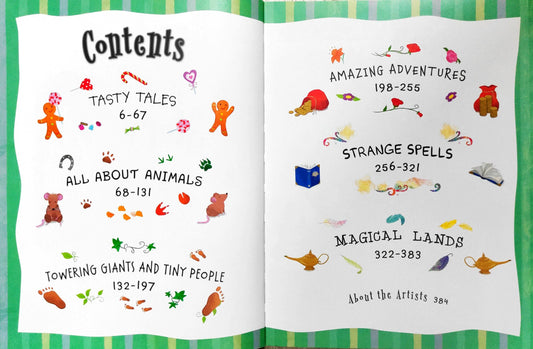 Contents
TASTY TALES
6-67
ALL ABOUT ANIMALS
68-131
TOWERING GIANTS AND TINY PEOPLE
132-197
AMAZING ADVENTURES
198-255
STRANGE SPELLS
256-321
MAGICAL LANDS
322-383
About the Artists 384